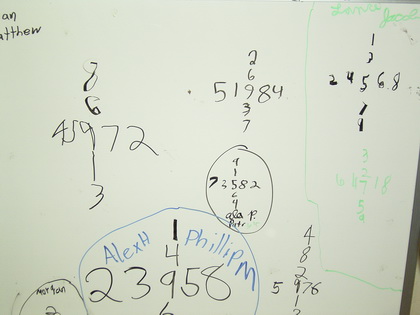 an
atthew
8
6
45972
1
3
2
6
51984
3
7
4
1
73582
6
4
P.
AlexH PhillipM
1
4
23958
6
Morgan
4
8
2
5976
1
1
3
24568
7
9
3
2
64718
5
9